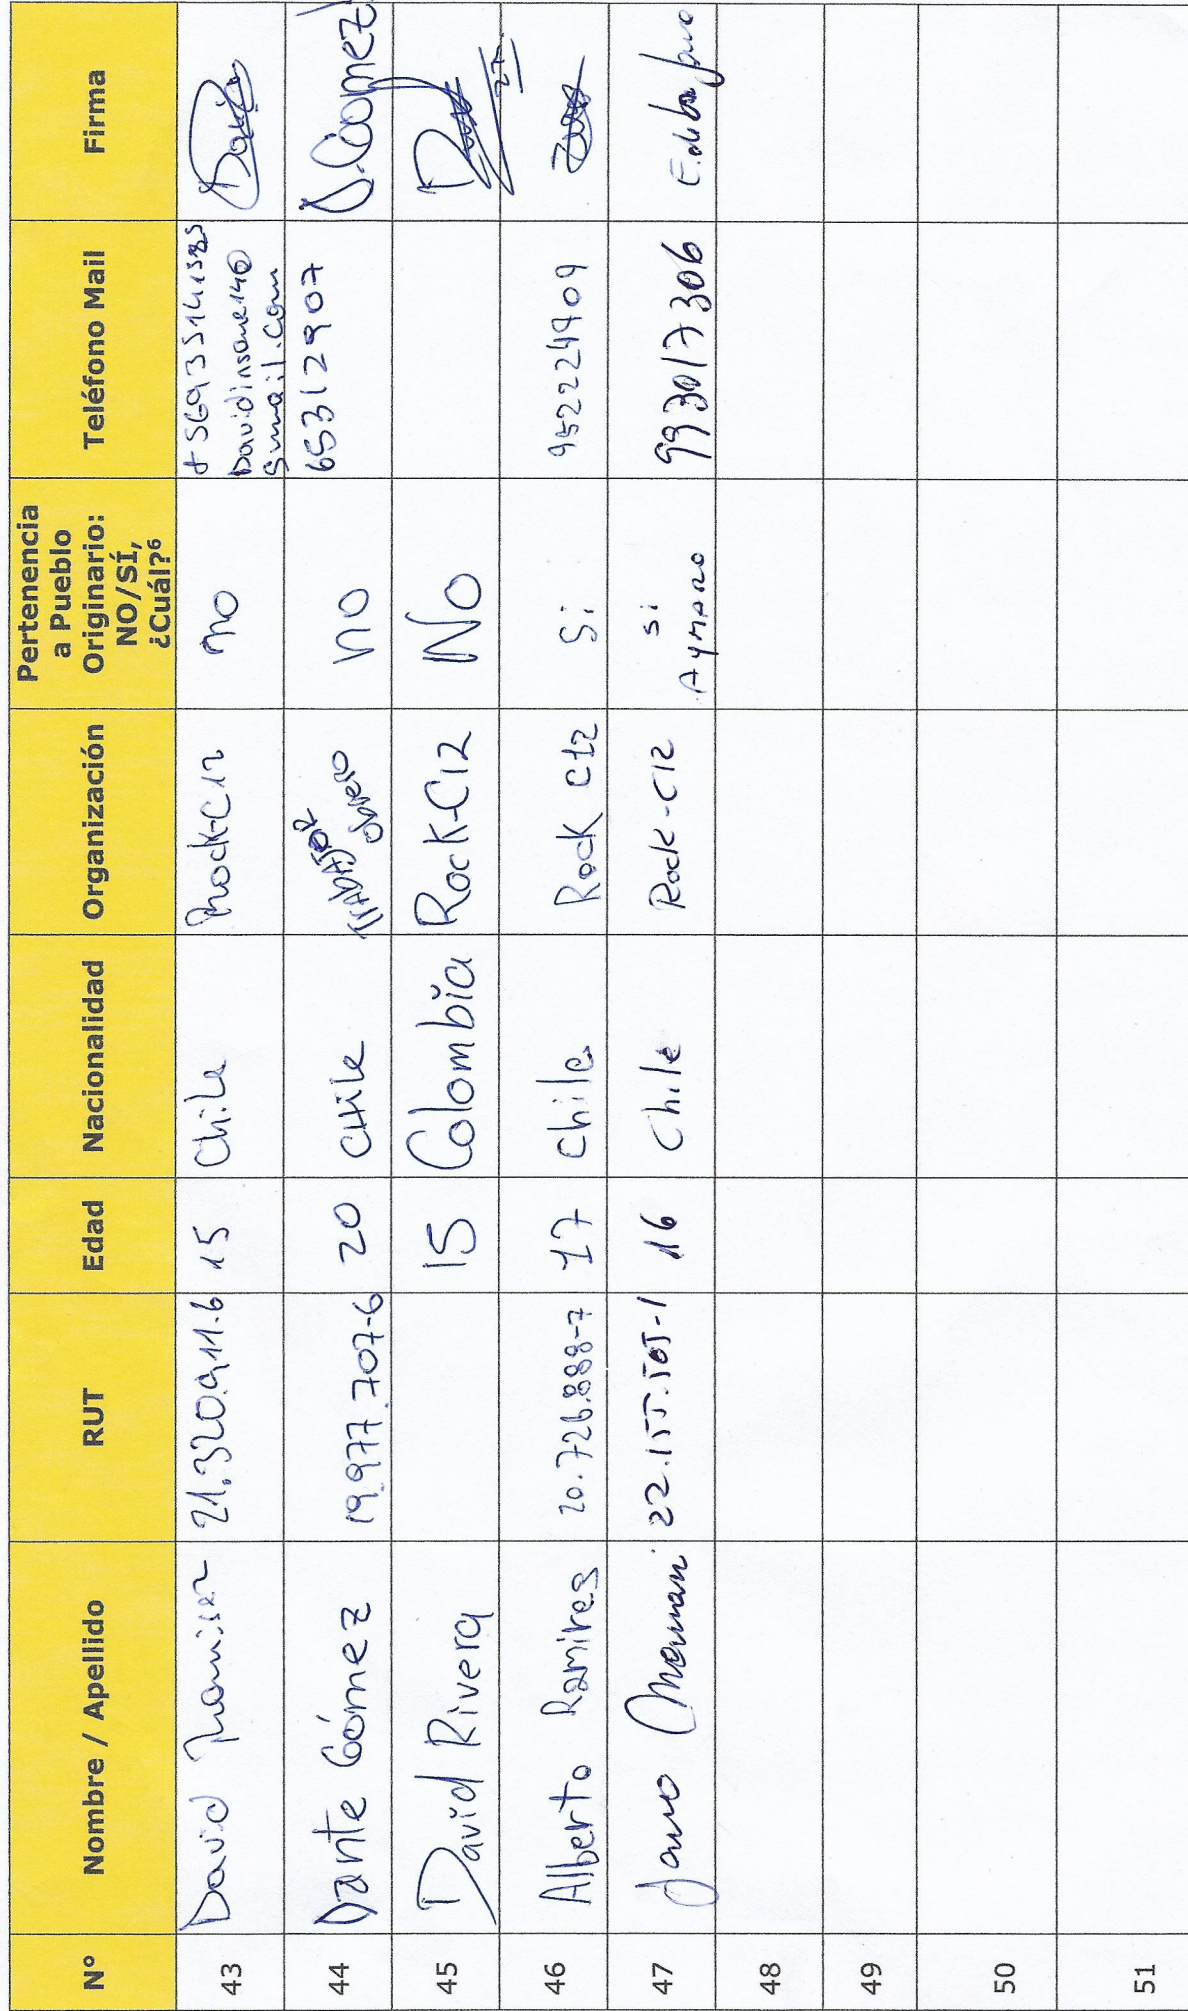 Nº Nombre / Apellido RUT Edad Nacionalidad Organización Pertenencia a Pueblo Originario: NO/SÍ, ¿Cuál?⁶ Teléfono Mail Firma
43 David 21.320.911.6 15 Chile Rock-C12 no
44 Dante Gómez 19.977.707-6 20 CHile TRABAJADOR no 65312907 D.Gomez
45 David Rivera 15 Colombia Rock-C12 No
46 Alberto Ramires 20.726.888-7 17 Chile Rock C12 Si 952224909
47 Jano Mamani 22.155.505-1 16 Chile Rock-C12 si Aymara 993017306
48
49
50
51